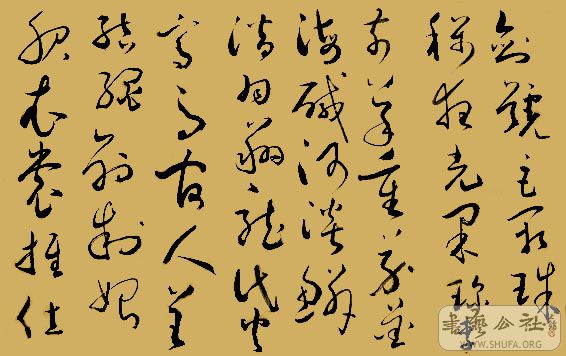 劍號巨闕珠
稱夜光果珍李
柰菜重芥薑
海鹹河淡鱗
潛羽翔龍師火
帝鳥官人皇
服衣裳推位
書藝公社
WWW.SHUFA.ORG